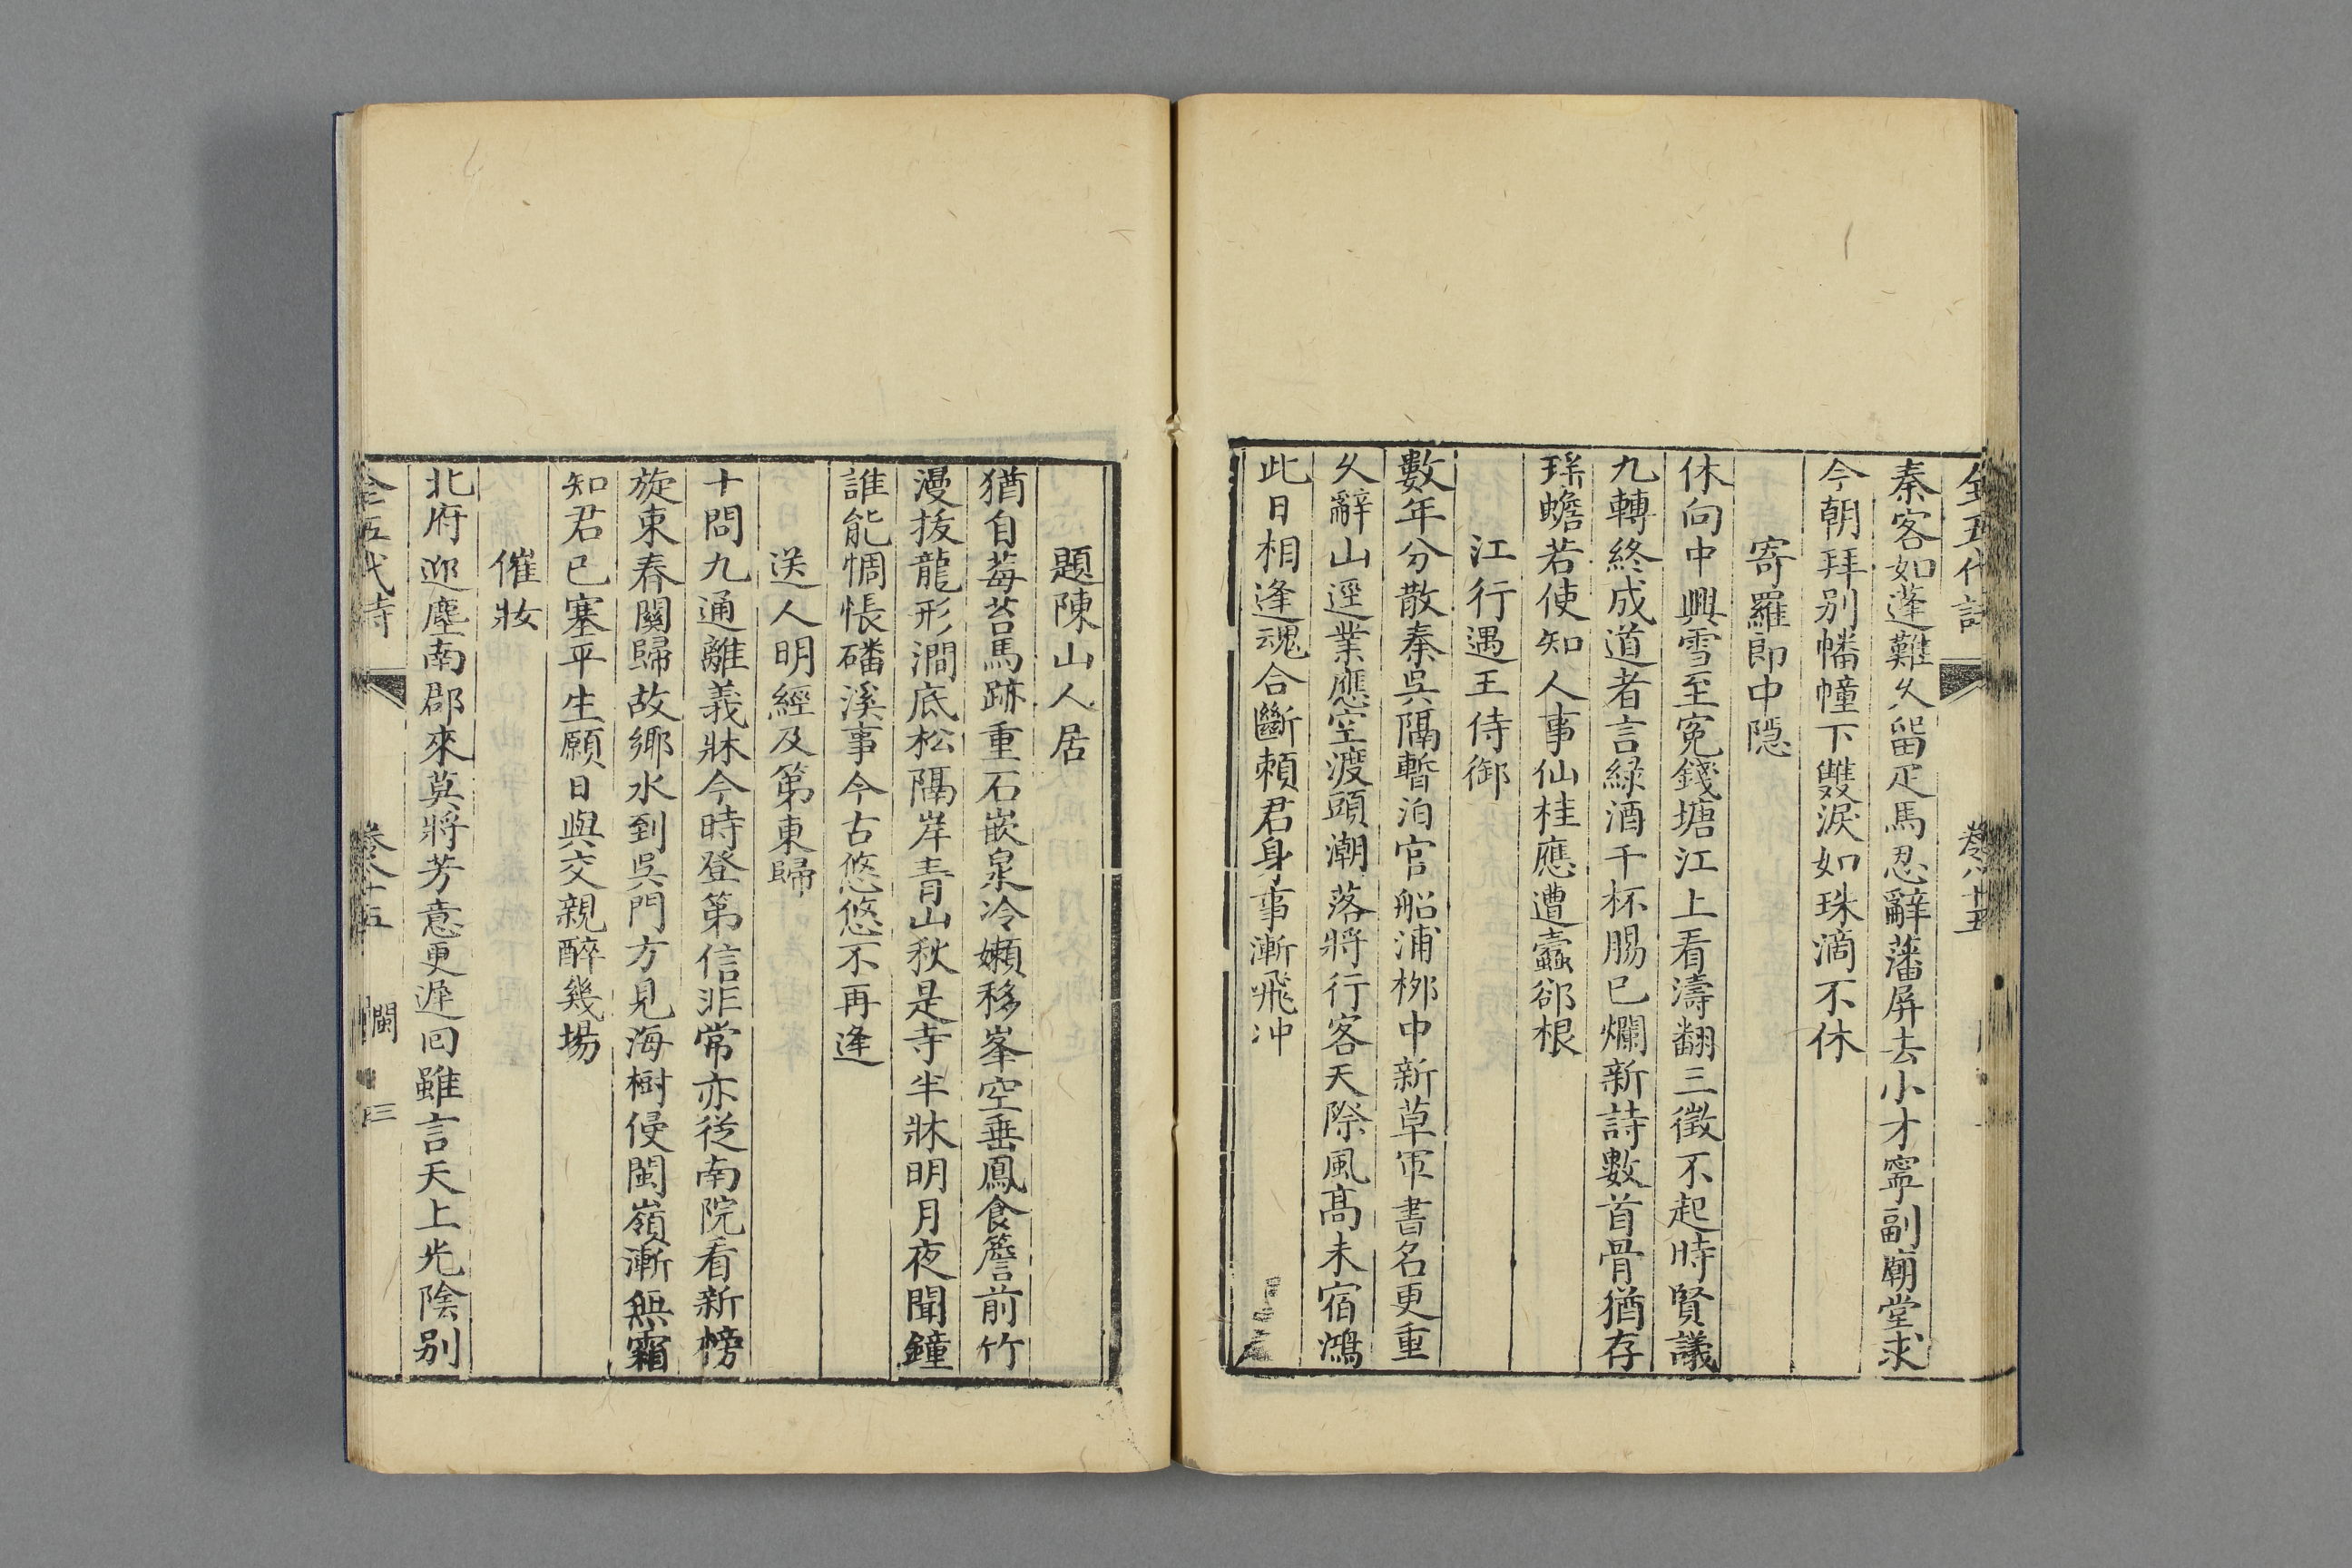 全五代詩 卷八十五
秦客如蓬難久留疋馬忍辭藩屏去小才寧副廟堂求
今朝拜別幡幢下雙淚如珠滴不休
寄羅郎中隱
休向中興雪至寃錢塘江上看濤翻三徵不起時賢議
九轉終成道者言綠酒千杯腸已爛新詩數首骨猶存
瑤蟾若使知人事仙桂應遭蠹郤根
江行遇王侍御
數年分散秦吳隔暫泊官船浦栁中新草軍書名更重
久辭山逕業應空渡頭潮落將行客天際風高未宿鴻
此日相逢魂合斷賴君身事漸飛冲
題陳山人居
猶自莓苔馬跡重石嵌泉冷嬾移峯空垂鳳食簷前竹
漫拔龍形澗底松隔岸青山秋是寺半牀明月夜聞鐘
誰能惆悵磻溪事今古悠悠不再逢
送人明經及第東歸
十問九通離義牀今時登第信非常亦從南院看新榜
旋束春關歸故鄉水到吳門方見海樹侵閩嶺漸無霜
知君已塞平生願日與交親醉幾場
催妝
北府迎塵南郡來莫將芳意更遲回雖言天上光陰別
全五代詩 卷八十五 閩 三